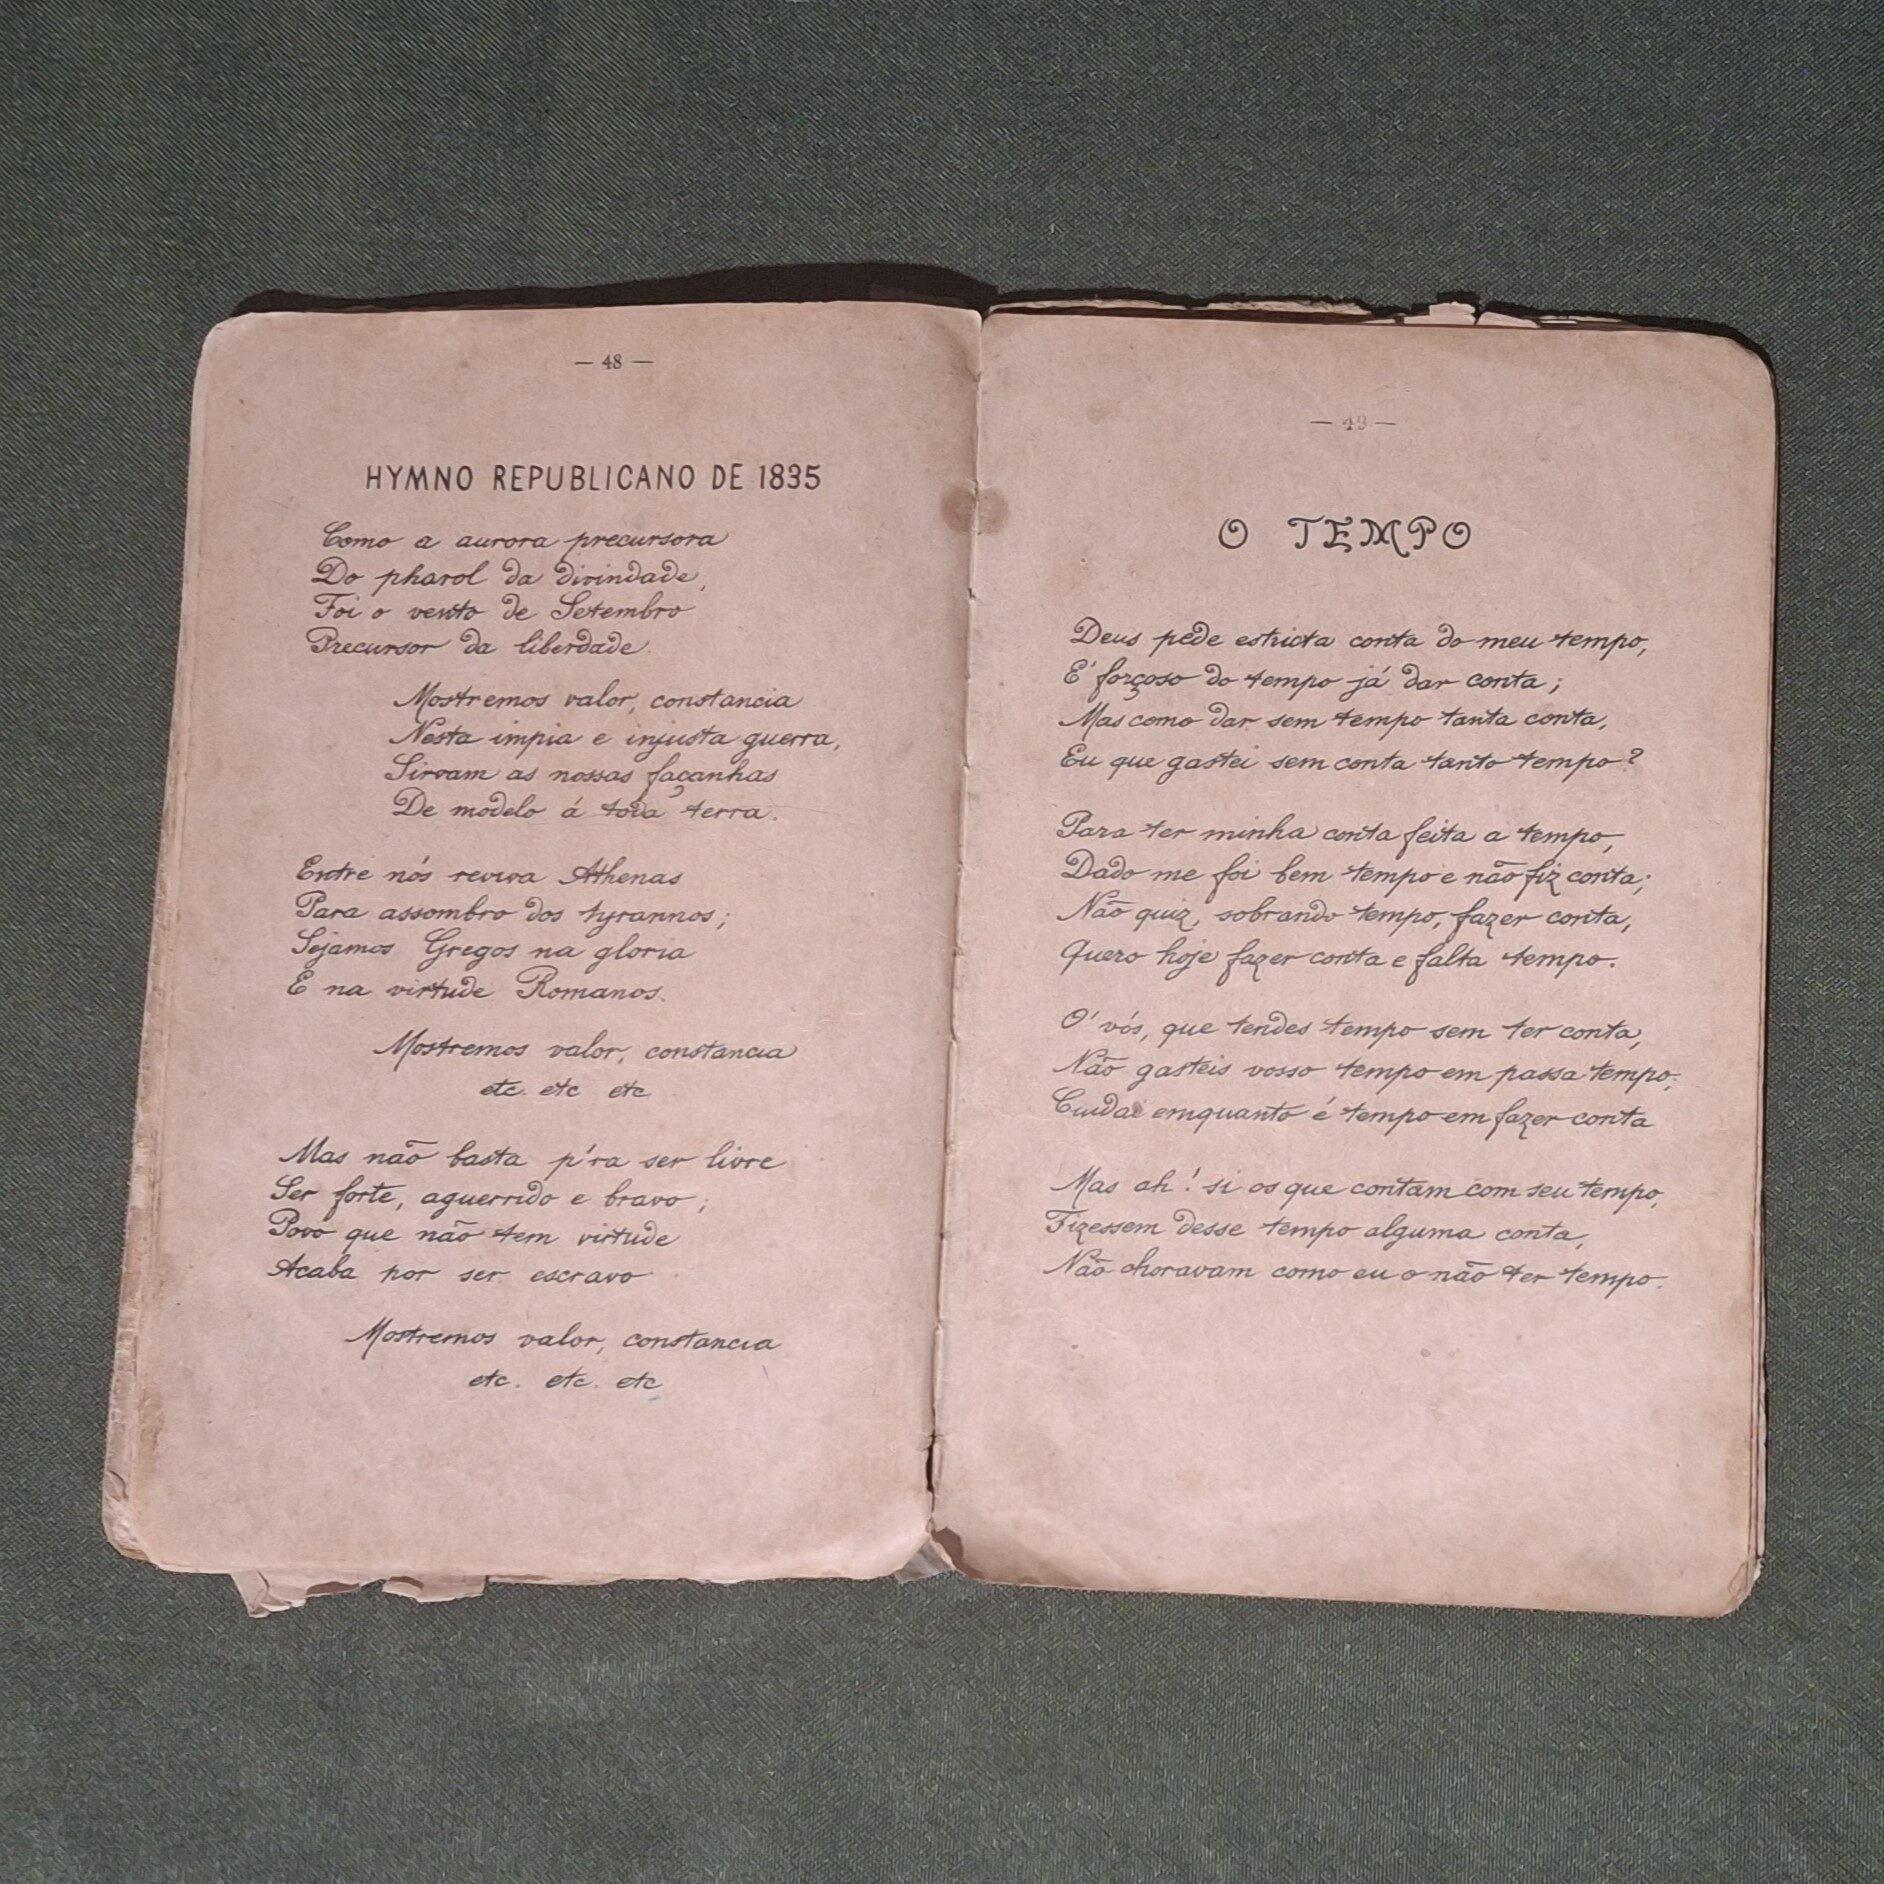 — 48 —
HYMNO REPUBLICANO DE 1835
Como a aurora precursora
Do pharol da divindade,
Foi o vento de Setembro
Precursor da liberdade.
Mostremos valor, constancia
Nesta impia e injusta guerra,
Sirvam as nossas façanhas
De modelo á toda terra.
Entre nós reviva Athenas
Para assombro dos tyrannos;
Sejamos Gregos na gloria
E na virtude Romanos.
Mostremos valor, constancia
etc. etc etc
Mas não basta p'ra ser livre
Ser forte, aguerrido e bravo;
Povo que não tem virtude
Acaba por ser escravo
Mostremos valor, constancia
etc. etc. etc
— 49 —
O TEMPO
Deus pede estricta conta do meu tempo,
E' forçoso do tempo já dar conta;
Mas como dar sem tempo tanta conta,
Eu que gastei sem conta tanto tempo?
Para ter minha conta feita a tempo,
Dado me foi bem tempo e não fiz conta;
Não quiz, sobrando tempo, fazer conta,
Quero hoje fazer conta e falta tempo.
O' vós, que tendes tempo sem ter conta,
Não gasteis vosso tempo em passa tempo;
Cuidai emquanto é tempo em fazer conta
Mas ah! si os que contam com seu tempo,
Fizessem desse tempo alguma conta,
Não choravam como eu o não ter tempo.